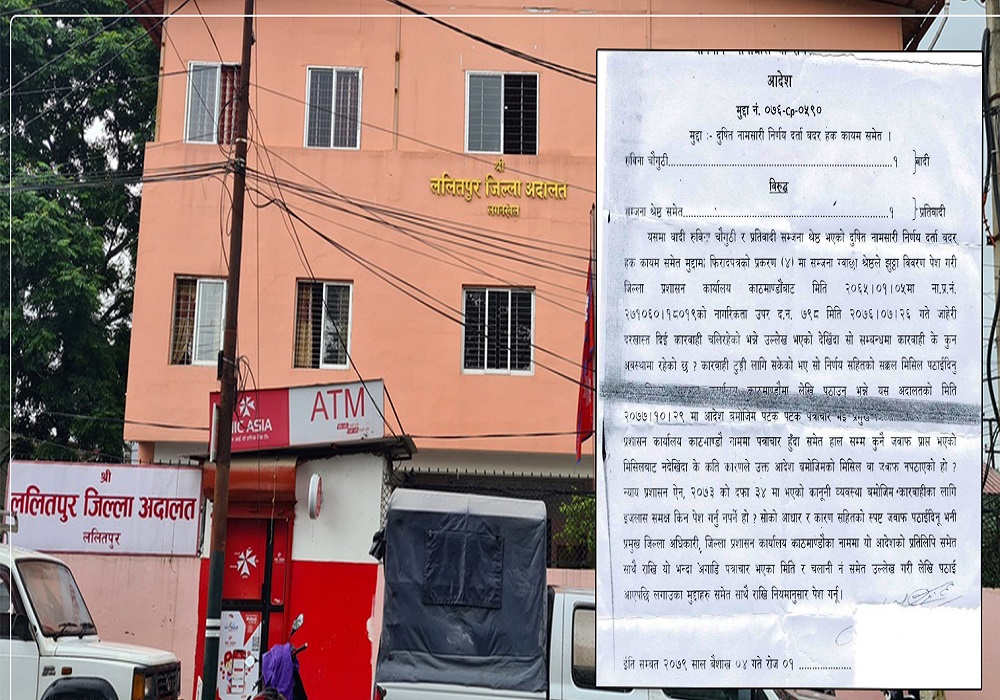 श्री
ललितपुर जिल्ला अदालत
लगनखेल
NIC ASIA
ATM
श्री
ललितपुर जिल्ला अदालत
ललितपुर
आदेश
मुद्दा नं. ०७६-Cp-०५९०
मुद्दा :- दुषित नामसारी निर्णय दर्ता बदर हक कायम समेत ।
रुबिना चौगुठी......................................................१ }बादी
विरुद्ध
सम्जना श्रेष्ठ समेत..................................................१ }प्रतिवादी
यसमा वादी रुबिना चौगुठी र प्रतिवादी सम्जना श्रेष्ठ भएको दुषित नामसारी निर्णय दर्ता बदर
हक कायम समेत मुद्दामा फिरादपत्रको प्रकरण (४) मा सम्जना ग्वाछा श्रेष्ठले झुठ्ठा बिबरण पेश गरी
जिल्ला प्रशासन कार्यालय काठमाण्डौबाट मिति २०६५।०१।०५मा ना.प्र.नं.
२७१०६०।१८०१९को नागरिकता उपर द.न. ७९८ मिति २०७६।०७।२६ गते जाहेरी
दरखास्त दिई कारवाही चलिरहेको भन्ने उल्लेख भएको देखिंदा सो सम्बन्धमा कारवाही के कुन
अवस्थामा रहेको छ ? कारवाही टुङ्गी लागि सकेको भए सो निर्णय सहितको सक्कल मिसिल पठाईदिनु
कार्यालय काठमाण्डौमा लेखि पठाउन भन्ने यस अदालतको मिति
२०७७।१०।२९ मा आदेश बमोजिम पटक पटक पत्राचार भई प्रमुख
प्रशासन कार्यालय काठमाण्डौ नाममा पत्राचार हुँदा समेत हाल सम्म कुनै जवाफ प्राप्त भएको
मिसिलबाट नदेखिंदा के कति कारणले उक्त आदेश बमोजिमको मिसिल वा जवाफ नपठाएको हो ?
न्याय प्रशासन ऐन, २०७३ को दफा ३४ मा भएको कानूनी व्यवस्था बमोजिम कारवाहीका लागि
इजलास समक्ष किन पेश गर्नु नपर्ने हो ? सोको आधार र कारण सहितको स्पष्ट जवाफ पठाईदिनू भनी
प्रमुख जिल्ला अधिकारी, जिल्ला प्रशासन कार्यालय काठमाण्डौका नाममा यो आदेशको प्रतिलिपि समेत
साथै राखि यो भन्दा अगाडि पत्राचार भएका मिति र चलानी नं समेत उल्लेख गरी लेखि पठाई
आएपछि लगाउका मुद्दाहरु समेत साथै राखि नियमानुसार पेश गर्नू।
ईति सम्बत २०७९ साल बैशाख ०४ गते रोज ०१ ...................